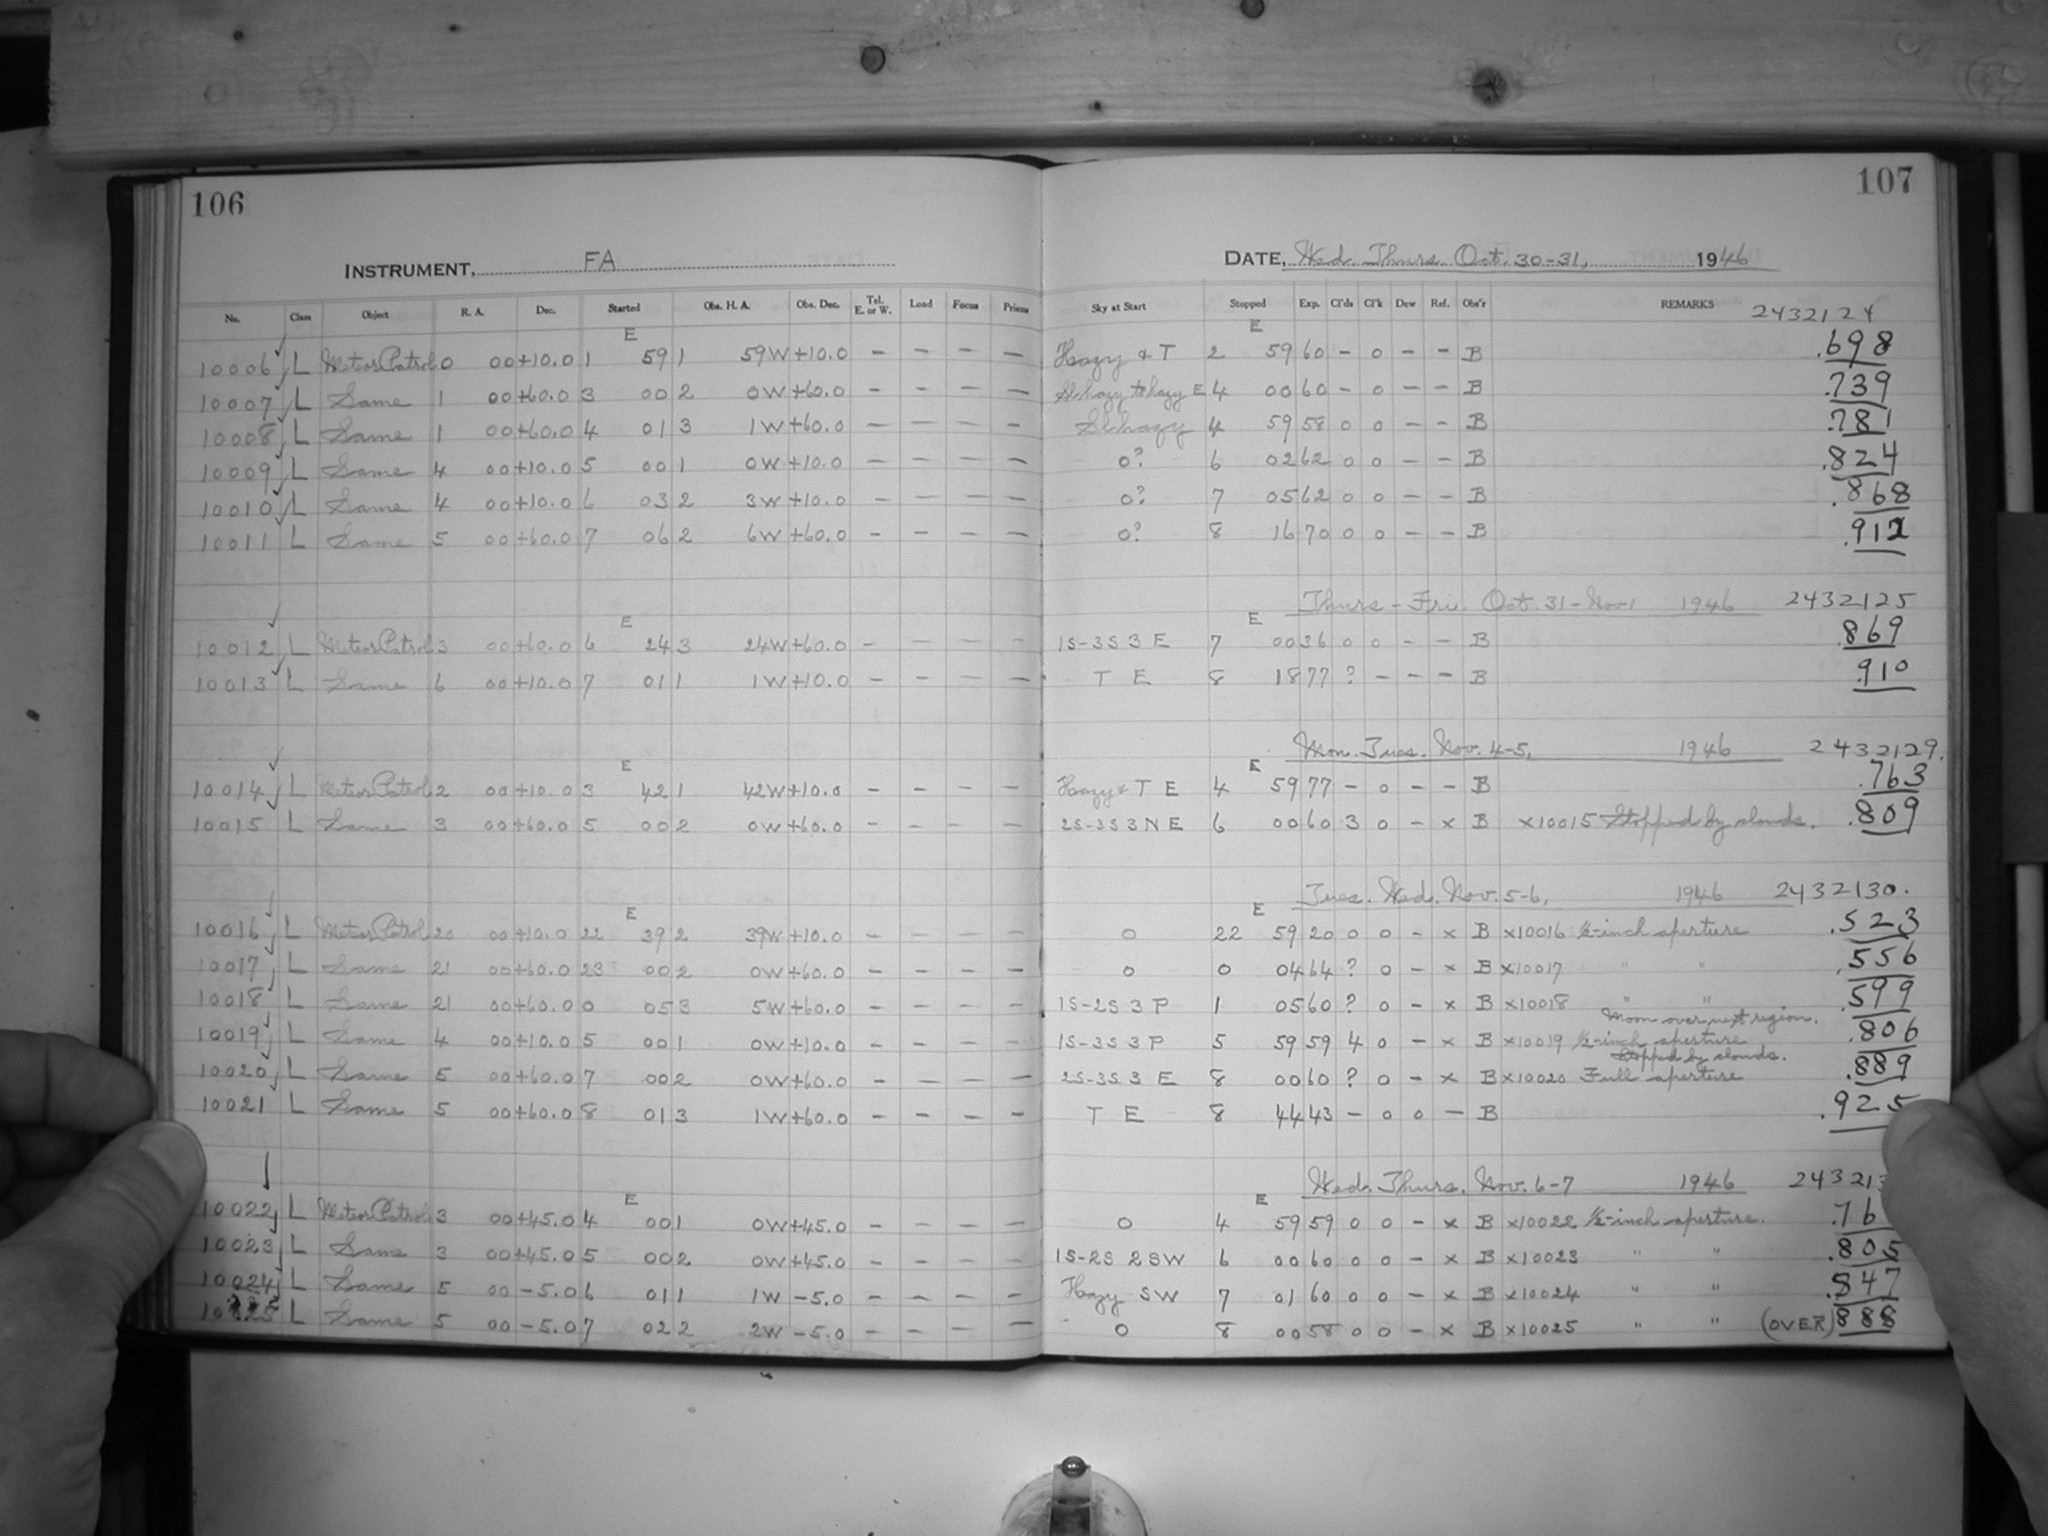 106
107
INSTRUMENT, FA
DATE, Wed. Thurs. Oct. 30-31, 1946
No. Class Object R. A. Dec. Started Obs. H. A. Obs. Dec. Tel. E. or W. Load Focus Prisms Sky at Start Stopped Exp. Cl'ds Cl'k Dew Ref. Obs'r REMARKS 2432124
E E
10006 L Meteor Patrol 0 00 +10.0 1 59 1 59W +10.0 - - - - Hazy & T 2 59 60 - 0 - - B .698
10007 L Same 1 00 +60.0 3 00 2 0W +60.0 - - - - Sl. hazy to hazy E 4 00 60 - 0 - - B .739
10008 L Same 1 00 +60.0 4 01 3 1W +60.0 - - - - Sl. hazy 4 59 58 0 0 - - B .781
10009 L Same 4 00 +10.0 5 00 1 0W +10.0 - - - - 0? 6 02 62 0 0 - - B .824
10010 L Same 4 00 +10.0 6 03 2 3W +10.0 - - - - 0? 7 05 62 0 0 - - B .868
10011 L Same 5 00 +60.0 7 06 2 6W +60.0 - - - - 0? 8 16 70 0 0 - - B .912
Thurs - Fri. Oct. 31 - Nov 1 1946 2432125
E E
10012 L Meteor Patrol 3 00 +60.0 6 24 3 24W +60.0 - - - - 1S-3S 3 E 7 00 36 0 0 - - B .869
10013 L Same 6 00 +10.0 7 01 1 1W +10.0 - - - - T E 8 18 77 ? - - - B .910
Mon. Tues. Nov. 4-5, 1946 2432129.
E E
10014 L Meteor Patrol 2 00 +10.0 3 42 1 42W +10.0 - - - - Hazy & T E 4 59 77 - 0 - - B .763
10015 L Same 3 00 +60.0 5 00 2 0W +60.0 - - - - 2S-3S 3 NE 6 00 60 3 0 - x B x10015 Stopped by clouds. .809
Tues. Wed. Nov. 5-6, 1946 2432130.
E E
10016 L Meteor Patrol 20 00 +10.0 22 39 2 39W +10.0 - - - - 0 22 59 20 0 0 - x B x10016 ½-inch aperture .523
10017 L Same 21 00 +60.0 23 00 2 0W +60.0 - - - - 0 0 04 64 ? 0 - x B x10017 " " .556
10018 L Same 21 00 +60.0 0 05 3 5W +60.0 - - - - 1S-2S 3 P 1 05 60 ? 0 - x B x10018 " " .599
Moon over next region.
10019 L Same 4 00 +10.0 5 00 1 0W +10.0 - - - - 1S-3S 3 P 5 59 59 4 0 - x B x10019 ½-inch aperture .806
Stopped by clouds.
10020 L Same 5 00 +60.0 7 00 2 0W +60.0 - - - - 2S-3S 3 E 8 00 60 ? 0 - x B x10020 Full aperture .889
10021 L Same 5 00 +60.0 8 01 3 1W +60.0 - - - - T E 8 44 43 - 0 0 - B .925
Wed. Thurs. Nov. 6-7 1946 243213
E E
10022 L Meteor Patrol 3 00 +45.0 4 00 1 0W +45.0 - - - - 0 4 59 59 0 0 - x B x10022 ½-inch aperture. .76
10023 L Same 3 00 +45.0 5 00 2 0W +45.0 - - - - 1S-2S 2 SW 6 00 60 0 0 - x B x10023 " " .805
10024 L Same 5 00 -5.0 6 01 1 1W -5.0 - - - - Hazy SW 7 01 60 0 0 - x B x10024 " " .847
10025 L Same 5 00 -5.0 7 02 2 2W -5.0 - - - - 0 8 00 58 0 0 - x B x10025 " " (OVER) 888